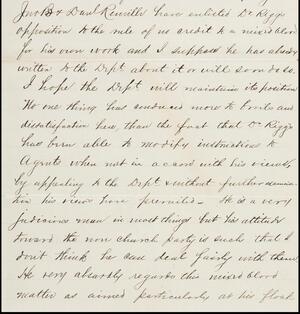 Jno B & Danl Renville have enlisted Dr Riggs
opposition to the rule of no credit to a mixed blood
for his own work and I suppose he has already
written to the Dept about it or will soon do so.
I hope the Dept will maintain its position
No one thing has conduced more to trouble and
dissatisfaction here, than the fact that Dr Riggs
has been able to modify instructions to
Agents when not in accord with his views by
by appealing to the Dept & without further
his views have prevailed. He is a very
judicious man in most things but his attitude
toward the non church party is such that I
dont think he can deal fairly with them
He very absurdly regards this mixed blood
matter as aimed particularly at his flock